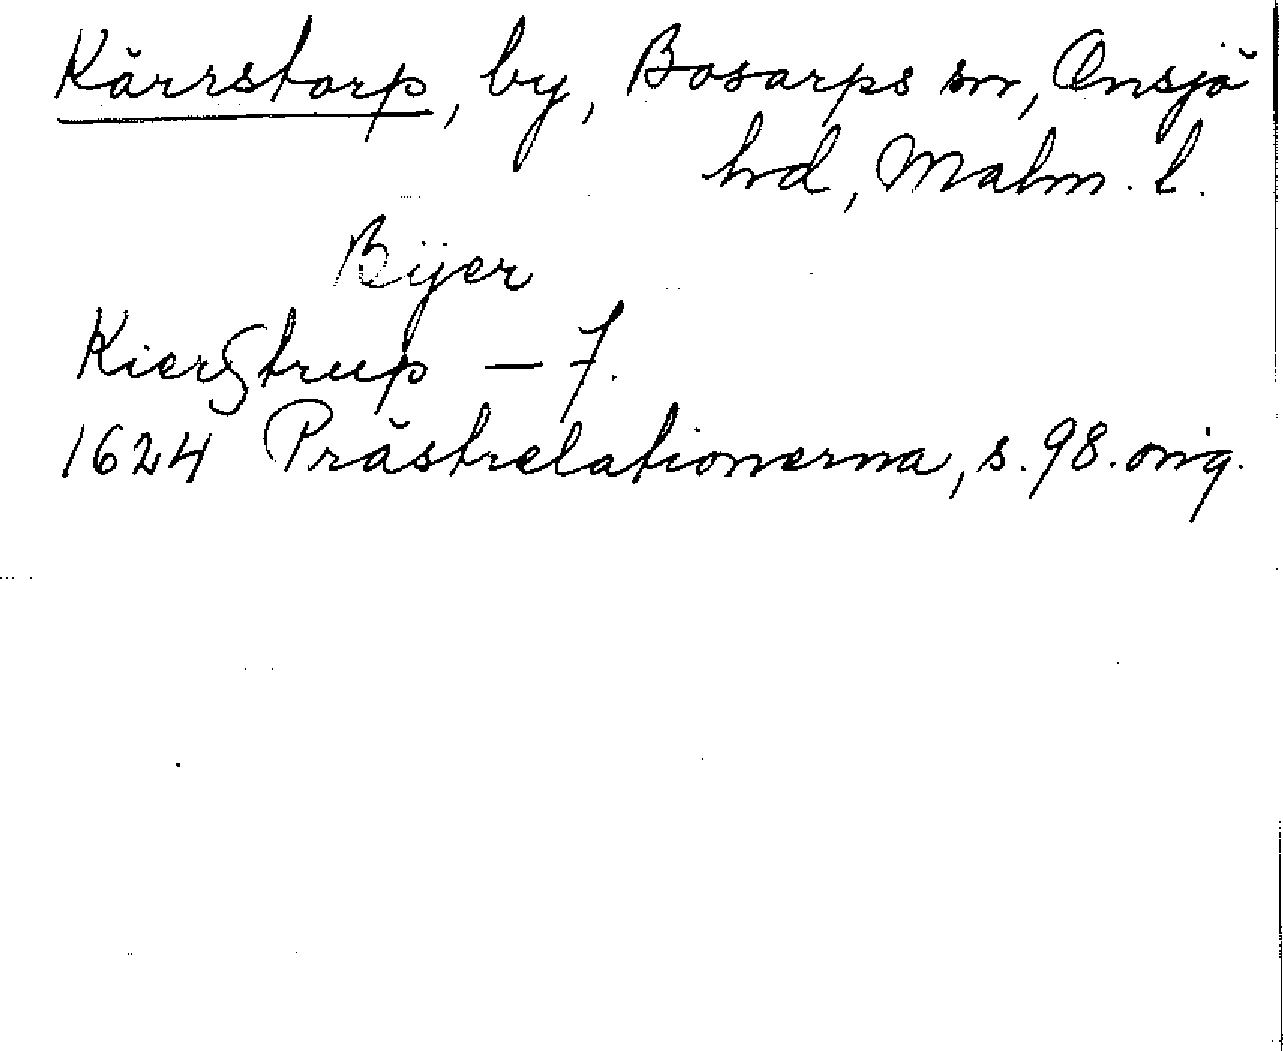 Kärrstorp, by, Bosarps sn, Onsjö
hd, Malm. l.
Bÿer
Kierstrup — 7.
1624 Prästrelationerna, s. 98. orig.